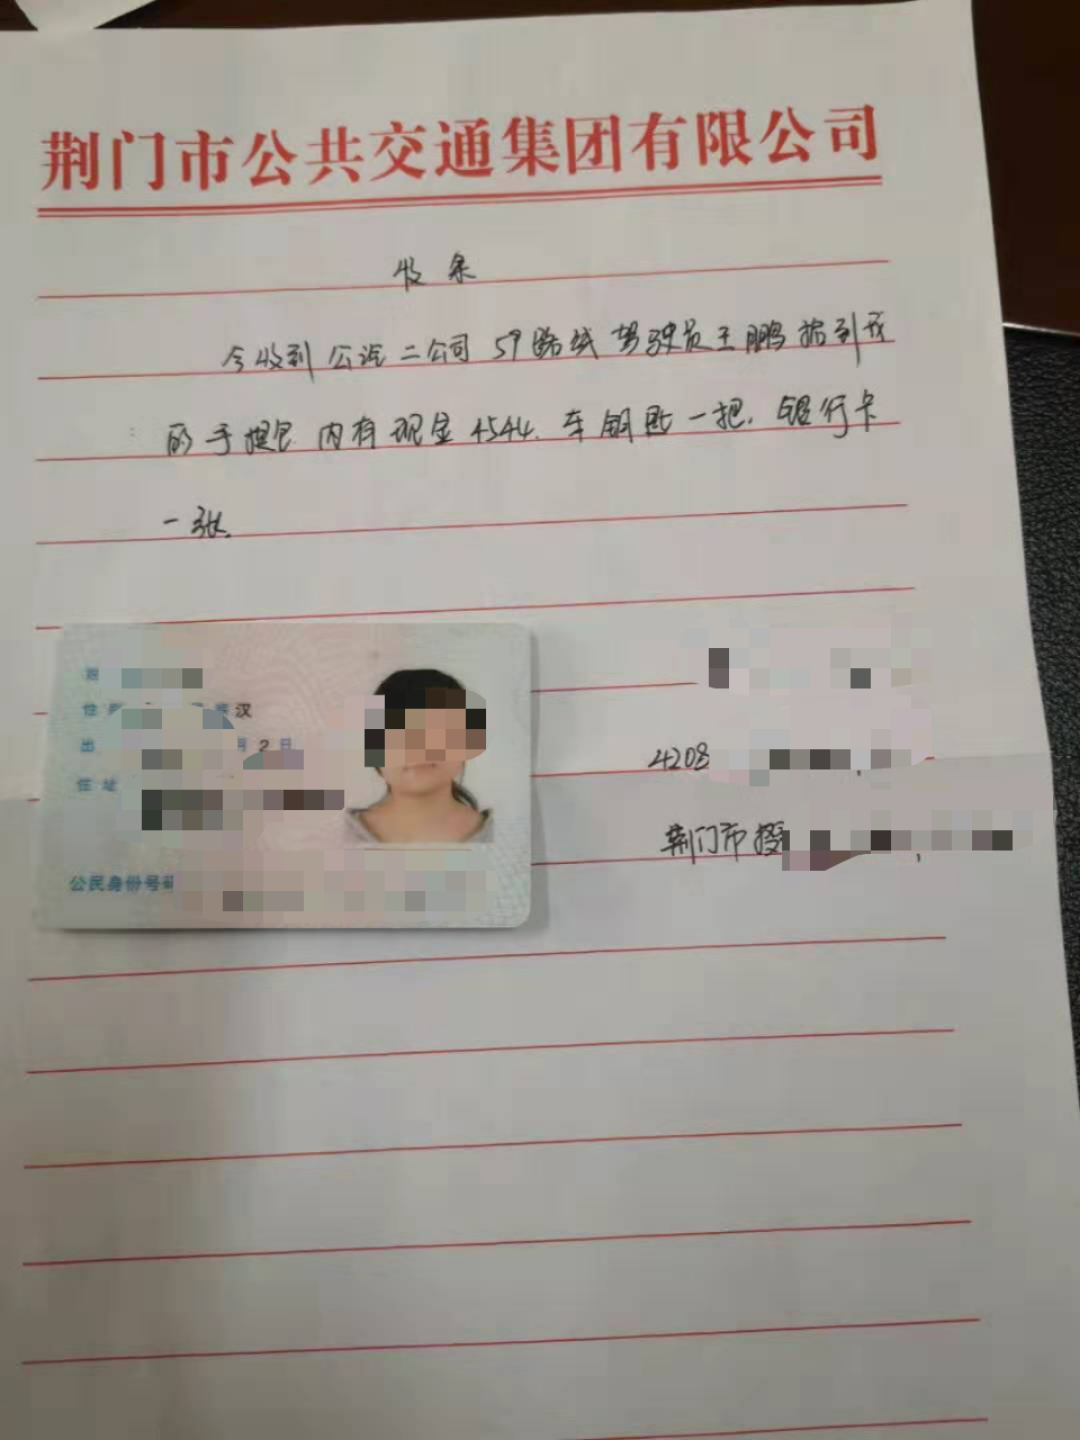 荆门市公共交通集团有限公司
收条
今收到公汽二公司 59路线驾驶员王鹏拾到我
的手提包 内有现金4544.车钥匙一把.银行卡
一张.
汉
出 月 2 日
住址
公民身份号码
4208
荆门市掇